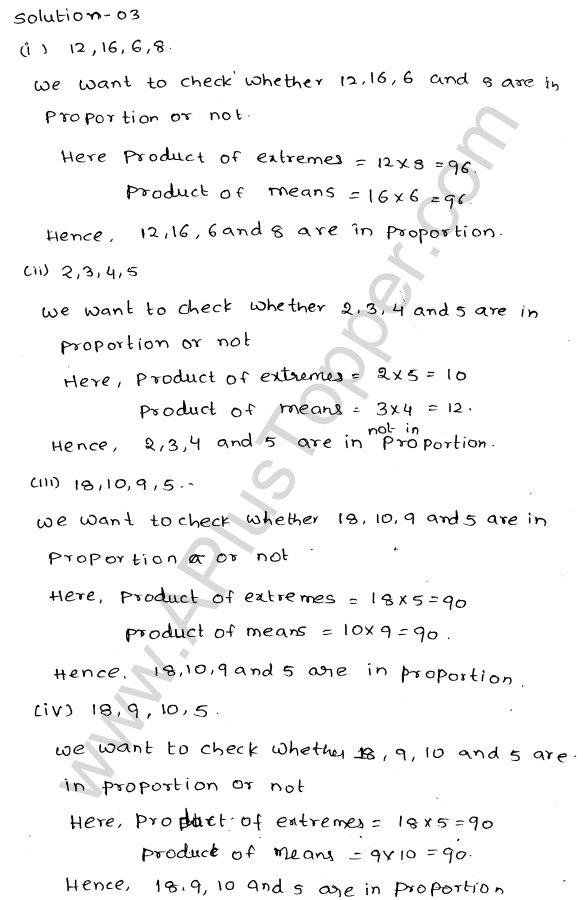 Solution-03
(i) 12,16,6,8.
we want to check whether 12,16,6 and 8 are in
proportion or not.
Here Product of extremes = 12×8 = 96.
Product of means = 16×6 = 96.
Hence, 12,16,6 and 8 are in proportion.
(ii) 2,3,4,5
we want to check whether 2,3,4 and 5 are in
proportion or not
Here, product of extremes = 2×5 = 10
product of means = 3×4 = 12.
not in
Hence, 2,3,4 and 5 are in proportion.
(iii) 18,10,9,5..
we want to check whether 18, 10, 9 and 5 are in
proportion or not
Here, product of extremes = 18×5 = 90
product of means = 10×9 = 90.
Hence, 18,10,9 and 5 are in proportion.
(iv) 18, 9, 10, 5.
we want to check whether 18, 9, 10 and 5 are.
in proportion or not
Here, product of extremes = 18×5 = 90
product of means = 9×10 = 90.
Hence, 18,9,10 and 5 are in proportion
www.APlusTopper.com